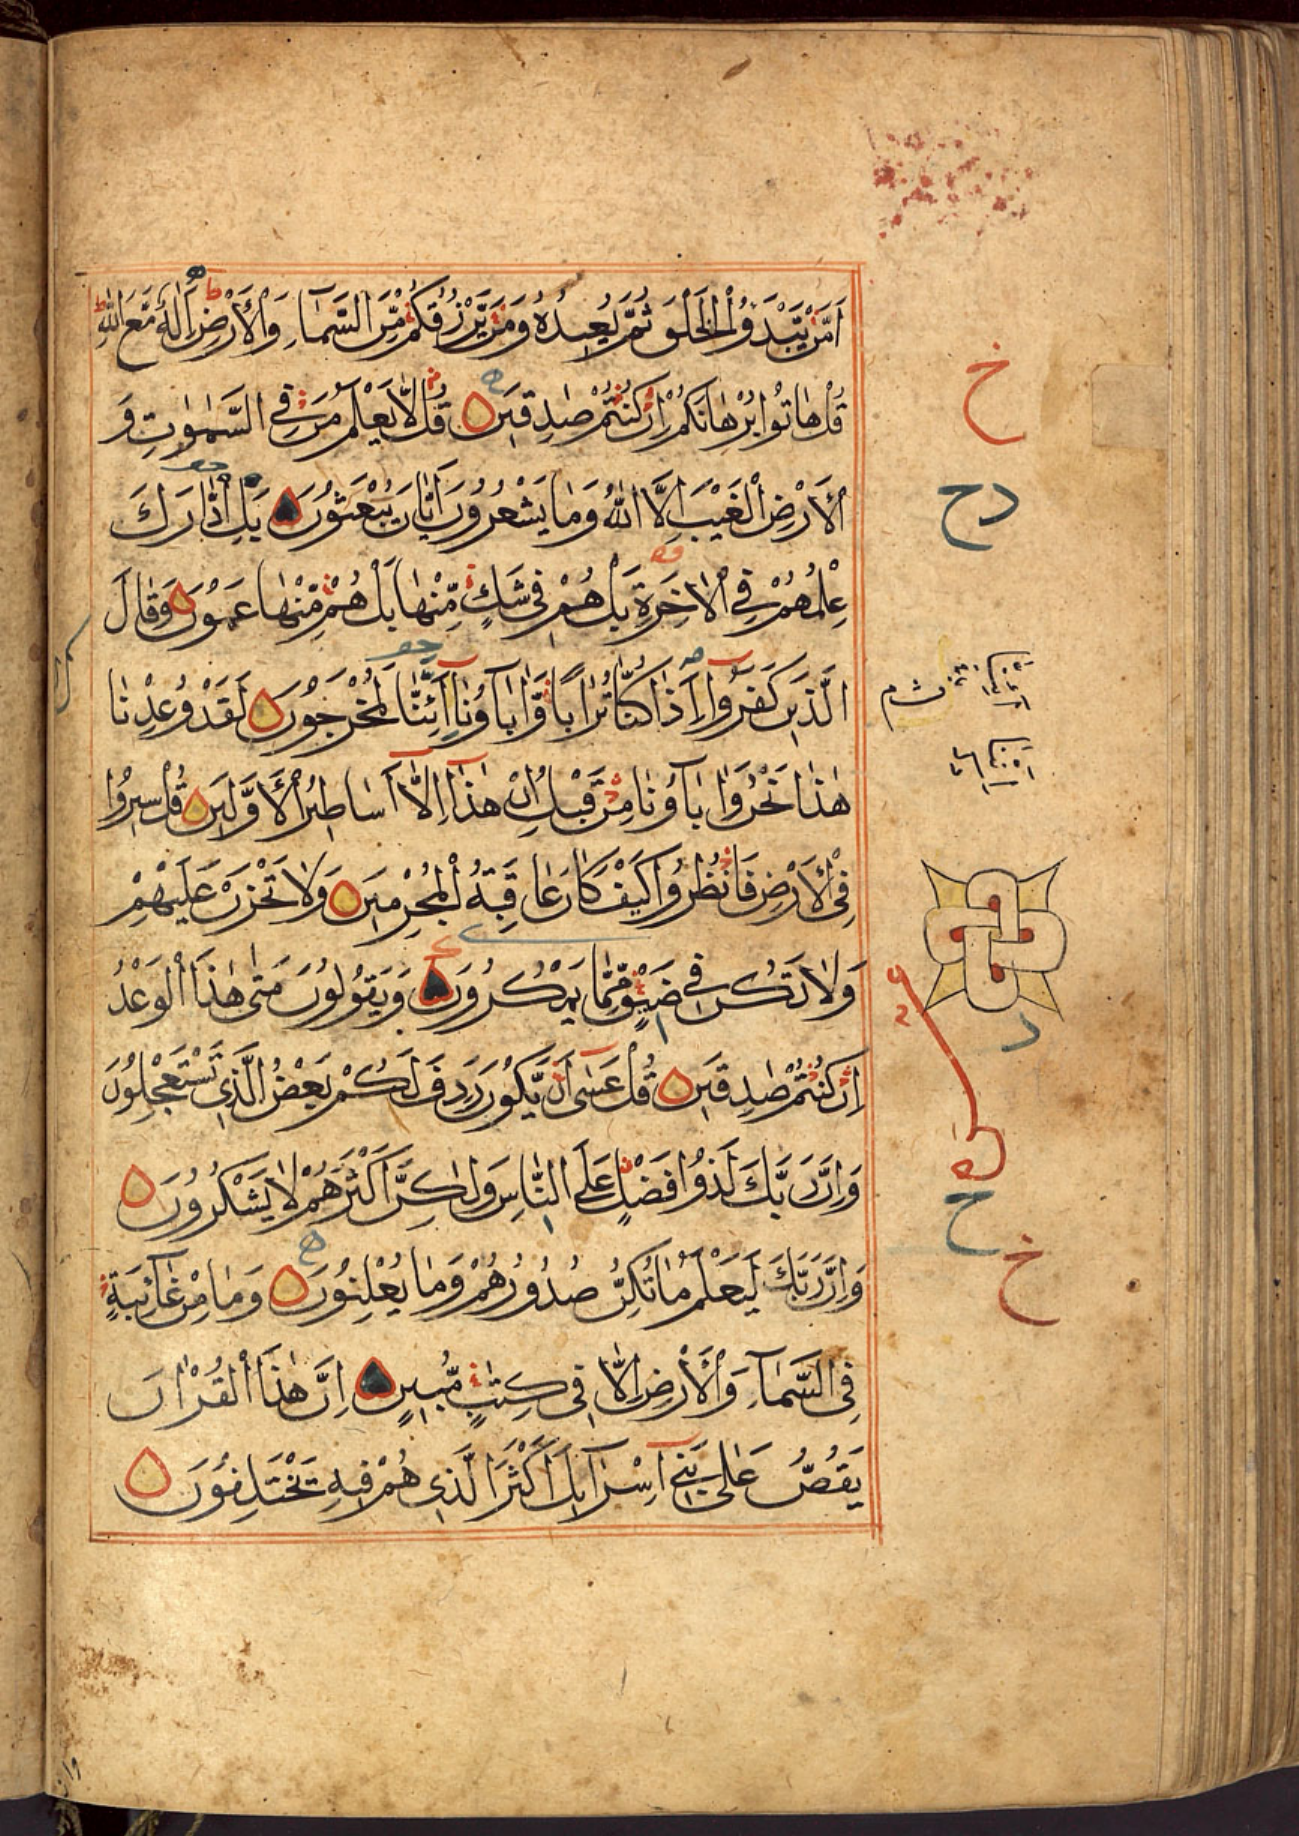 اَمَّنْ يَّبْدَؤُا الْخَلْقَ ثُمَّ يُعِيْدُهٗ وَمَنْ يَّرْزُقُكُمْ مِّنَ السَّمَآءِ وَالْاَرْضِ ءَاِلٰهٌ مَّعَ اللّٰهِ
قُلْ هَاتُوْا بُرْهَانَكُمْ اِنْ كُنْتُمْ صٰدِقِيْنَ قُلْ لَّا يَعْلَمُ مَنْ فِي السَّمٰوٰتِ وَ
الْاَرْضِ الْغَيْبَ اِلَّا اللّٰهُ وَمَا يَشْعُرُوْنَ اَيَّانَ يُبْعَثُوْنَ بَلِ ادّٰارَكَ
عِلْمُهُمْ فِي الْاٰخِرَةِ بَلْ هُمْ فِيْ شَكٍّ مِّنْهَا بَلْ هُمْ مِّنْهَا عَمُوْنَ وَقَالَ
الَّذِيْنَ كَفَرُوْا ءَاِذَا كُنَّا تُرَابًا وَّاٰبَآؤُنَا اَئِنَّا لَمُخْرَجُوْنَ لَقَدْ وُعِدْنَا
هٰذَا نَحْنُ وَاٰبَآؤُنَا مِنْ قَبْلُ اِنْ هٰذَا اِلَّا اَسَاطِيْرُ الْاَوَّلِيْنَ قُلْ سِيْرُوْا
فِي الْاَرْضِ فَانْظُرُوْا كَيْفَ كَانَ عَاقِبَةُ الْمُجْرِمِيْنَ وَلَا تَحْزَنْ عَلَيْهِمْ
وَلَا تَكُنْ فِيْ ضَيْقٍ مِّمَّا يَمْكُرُوْنَ وَيَقُوْلُوْنَ مَتٰى هٰذَا الْوَعْدُ
اِنْ كُنْتُمْ صٰدِقِيْنَ قُلْ عَسٰى اَنْ يَّكُوْنَ رَدِفَ لَكُمْ بَعْضُ الَّذِيْ تَسْتَعْجِلُوْنَ
وَاِنَّ رَبَّكَ لَذُوْا فَضْلٍ عَلَى النَّاسِ وَلٰكِنَّ اَكْثَرَهُمْ لَا يَشْكُرُوْنَ
وَاِنَّ رَبَّكَ لَيَعْلَمُ مَا تُكِنُّ صُدُوْرُهُمْ وَمَا يُعْلِنُوْنَ وَمَا مِنْ غَآئِبَةٍ
فِي السَّمَآءِ وَالْاَرْضِ اِلَّا فِيْ كِتٰبٍ مُّبِيْنٍ اِنَّ هٰذَا الْقُرْاٰنَ
يَقُصُّ عَلٰى بَنِيْ اِسْرَآئِلَ اَكْثَرَ الَّذِيْ هُمْ فِيْهِ يَخْتَلِفُوْنَ